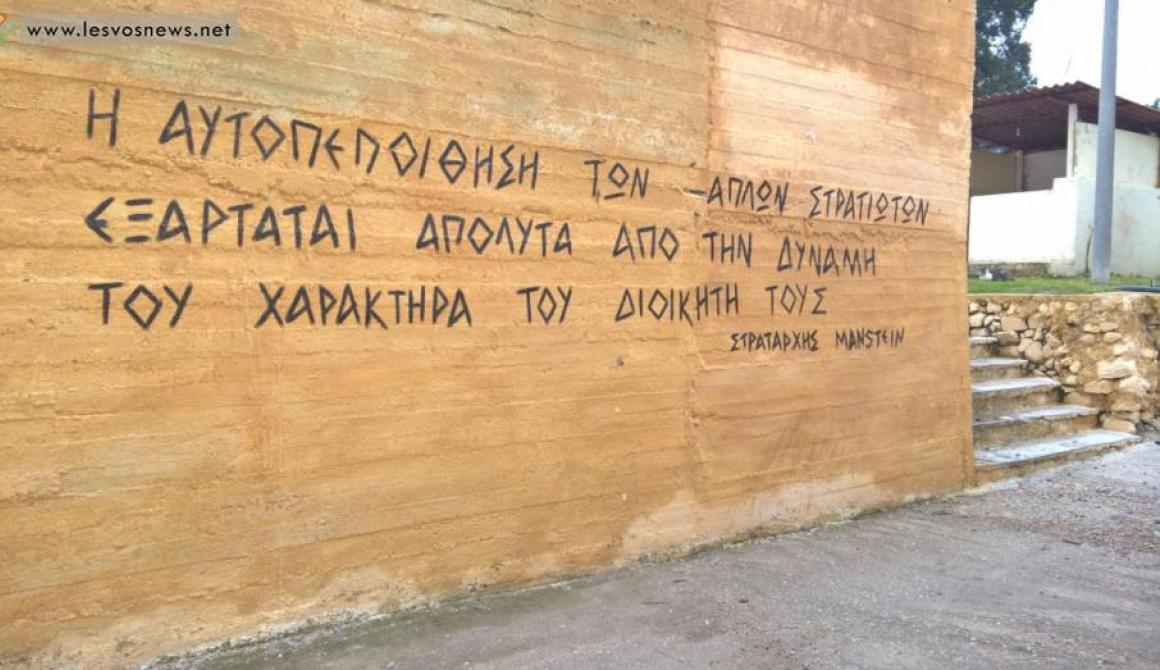 www.lesvosnews.net
Η ΑΥΤΟΠΕΠΟΙΘΗΣΗ ΤΩΝ -ΑΠΛΩΝ ΣΤΡΑΤΙΩΤΩΝ
ΕΞΑΡΤΑΤΑΙ ΑΠΟΛΥΤΑ ΑΠΟ ΤΗΝ ΔΥΝΑΜΗ
ΤΟΥ ΧΑΡΑΚΤΗΡΑ ΤΟΥ ΔΙΟΙΚΗΤΗ ΤΟΥΣ
ΣΤΡΑΤΑΡΧΗΣ MANSTEIN